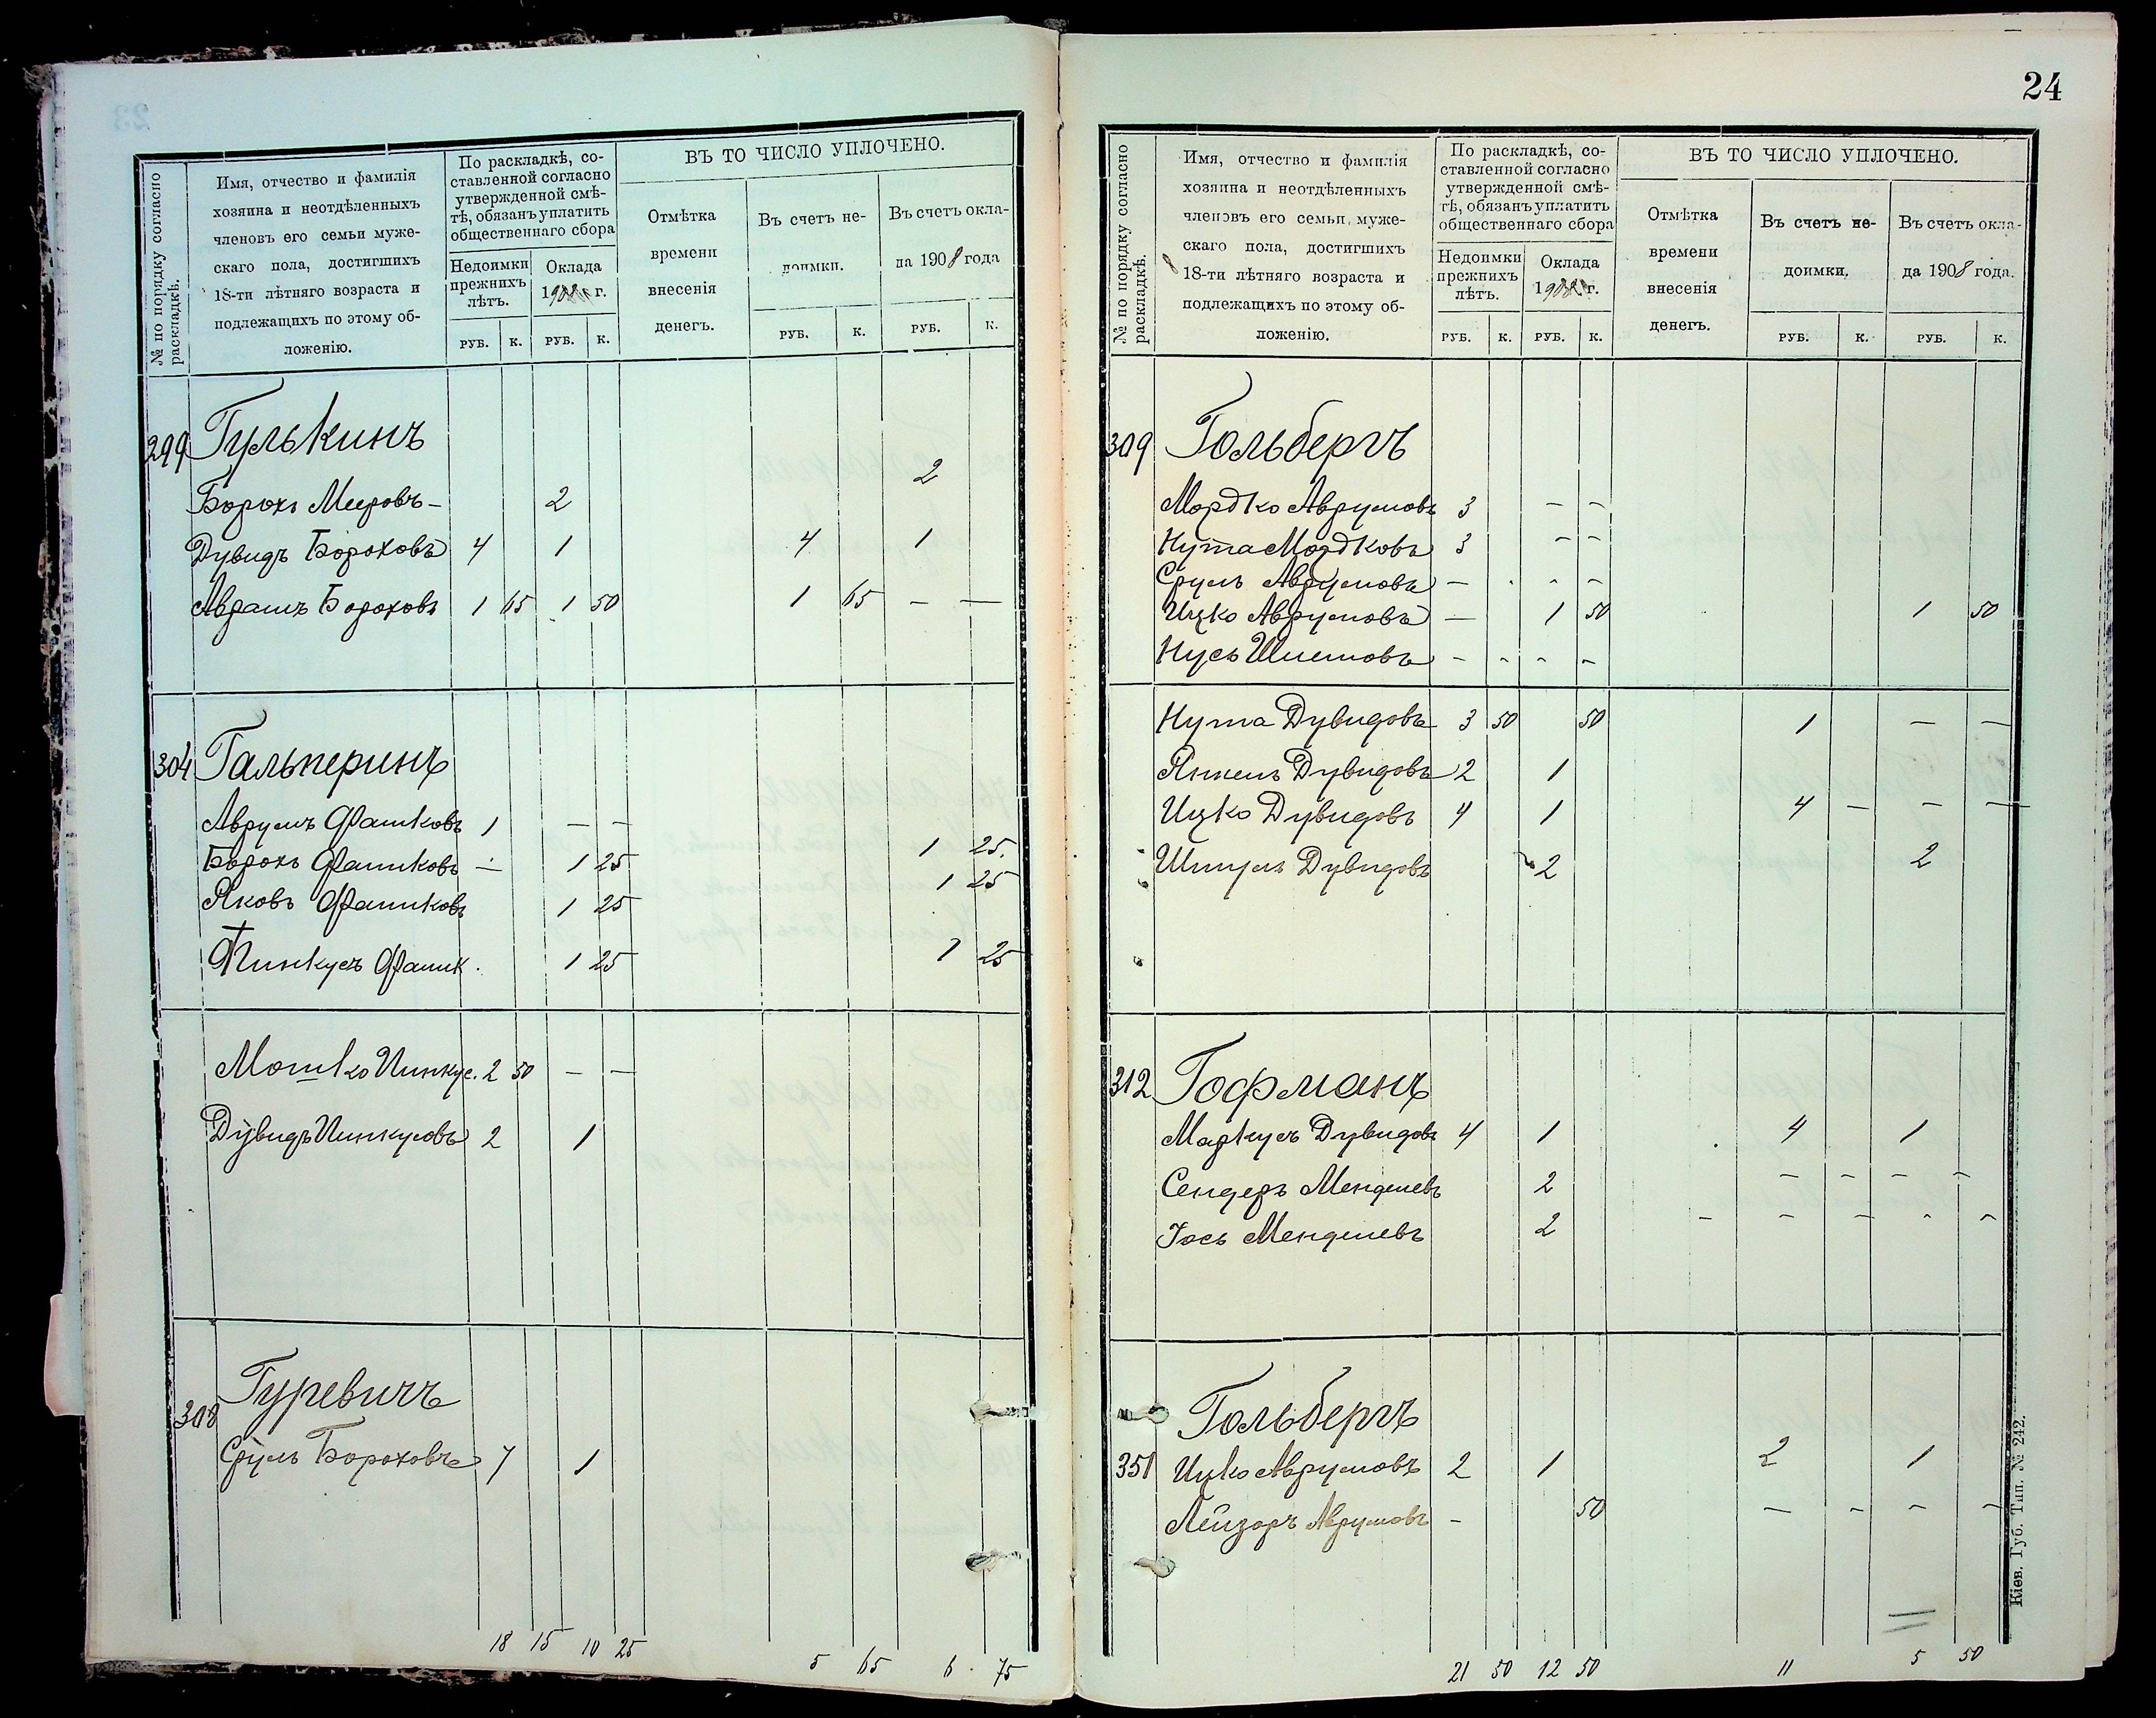 № по порядку согласно раскладкѣ.
Имя, отчество и фамилія
хозяина и неотдѣленныхъ
членовъ его семьи муже-
скаго пола, достигшихъ
18-ти лѣтняго возраста и
подлежащихъ по этому об-
ложенію.
По раскладкѣ, со-
ставленной согласно
утвержденной смѣ-
тѣ, обязанъ уплатить
общественнаго сбора
Недоимки
прежнихъ
лѣтъ.
Оклада
1908 г.
РУБ. К. РУБ. К.
ВЪ ТО ЧИСЛО УПЛОЧЕНО.
Отмѣтка
времени
внесенія
денегъ.
Въ счетъ не-
доимки.
Въ счетъ окла-
да 1908 года
РУБ. К. РУБ. К.
299 Гулькинъ
Борохъ Мееровъ - 2 2
Дувидъ Бороховъ 4 1 4 1
Аврамъ Бороховъ 1 65 1 50 1 65 — —
304 Гальперинъ
Аврумъ Фашковъ 1 — —
Борохъ Фашковъ — 1 25 1 25.
Яковъ Фашковъ 1 25 1 25
Пинкусъ Фашк. 1 25 1 25
Мошко Пинкус. 2 50 — —
Дувидъ Пинкусовъ 2 1
308 Гуревичъ
Сруль Бороховъ 7 1
18 15 10 25 5 65 6 75
24
№ по порядку согласно раскладкѣ.
Имя, отчество и фамилія
хозяина и неотдѣленныхъ
членовъ его семьи, муже-
скаго пола, достигшихъ
18-ти лѣтняго возраста и
подлежащихъ по этому об-
ложенію.
По раскладкѣ, со-
ставленной согласно
утвержденной смѣ-
тѣ, обязанъ уплатить
общественнаго сбора
Недоимки
прежнихъ
лѣтъ.
Оклада
1908 г.
РУБ. К. РУБ. К.
ВЪ ТО ЧИСЛО УПЛОЧЕНО.
Отмѣтка
времени
внесенія
денегъ.
Въ счетъ не-
доимки.
Въ счетъ окла-
да 1908 года.
РУБ. К. РУБ. К.
309 Гольбергъ
Мордко Аврумовъ 3 — —
Нута Мордковъ 3 — —
Сруль Аврумовъ — - - —
Ицко Аврумовъ — 1 50 1 50
Нусь Шмемовъ - - - -
Нута Дувидовъ 3 50 50 1 — —
Янкель Дувидовъ 2 1
Ицко Дувидовъ 4 1 4 — — —
Шмуль Дувидовъ 2 2
312 Гофманъ
Маркусъ Дувидовъ 4 1 4 1
Сендеръ Менделевъ 2 — — — —
Іось Менделевъ 2 — — — - -
Гольбергъ
351 Ицко Аврумовъ 2 1 2 1
Лейзоръ Аврумовъ — 50 — — — —
21 50 12 50 11 5 50
Кіев. Губ. Тип. № 242.